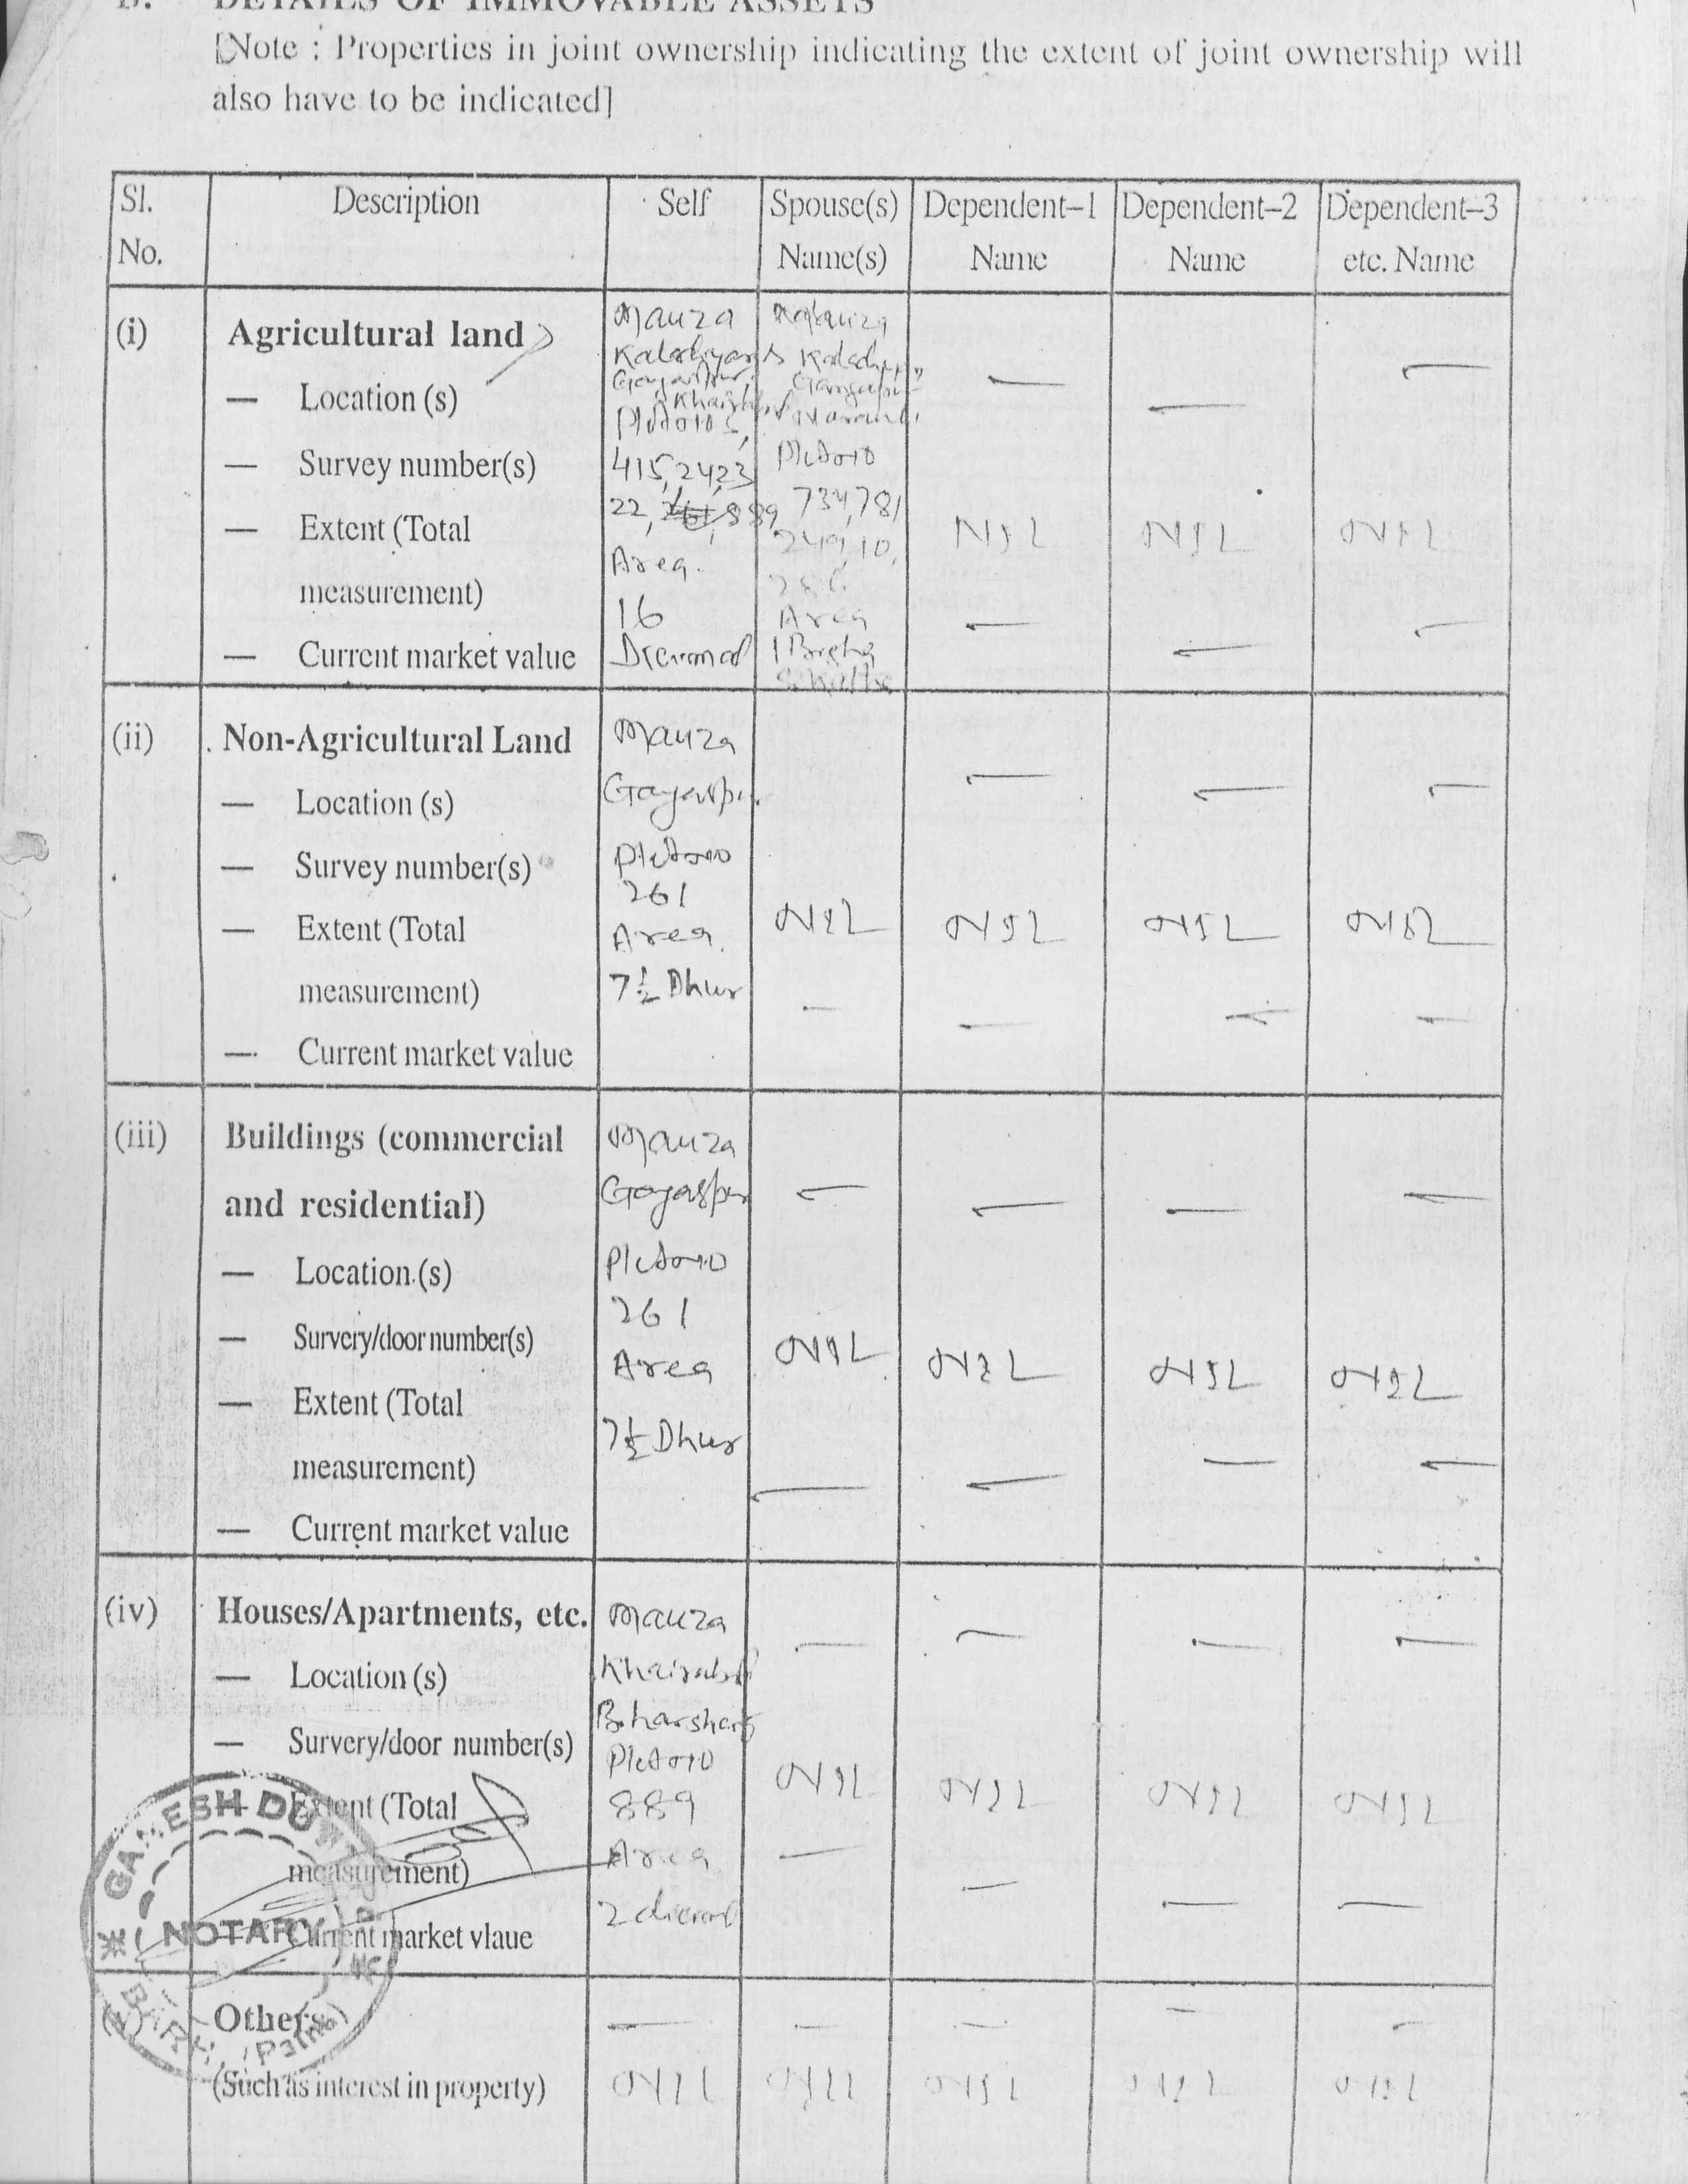 B. DETAILS OF IMMOVABLE ASSETS
[Note : Properties in joint ownership indicating the extent of joint ownership will
also have to be indicated]
Sl. No.
Description
Self
Spouse(s) Name(s)
Dependent–1 Name
Dependent–2 Name
Dependent–3 etc. Name
(i)
Agricultural land
— Location (s)
— Survey number(s)
— Extent (Total
measurement)
— Current market value
Mauza
415, 24, 23
22, 889
Area.
16
Mauza
734, 781
249, 10,
286
Area
1 Bigha
NIL
NIL
NIL
(ii)
Non-Agricultural Land
— Location (s)
— Survey number(s)
— Extent (Total
measurement)
— Current market value
Mauza
Gayaspur
Plot No
261
Area.
7½ Dhur
NIL
NIL
NIL
NIL
(iii)
Buildings (commercial
and residential)
— Location (s)
— Survery/door number(s)
— Extent (Total
measurement)
— Current market value
Mauza
Gayaspur
Plot No
261
Area
7½ Dhur
NIL
NIL
NIL
NIL
(iv)
Houses/Apartments, etc.
— Location (s)
— Survery/door number(s)
— Extent (Total
measurement)
— Current market vlaue
Mauza
Biharsharif
Plot No
889
Area
NIL
NIL
NIL
NIL
(v)
Others
(Such as interest in property)
NIL
NIL
NIL
NIL
NIL
GANESH
NOTARY
(Patna)